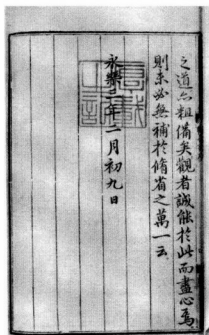 之道亦粗備矣觀者誠能於此而盡心焉
則未必無補於脩省之萬一云
永樂三年二月初九日